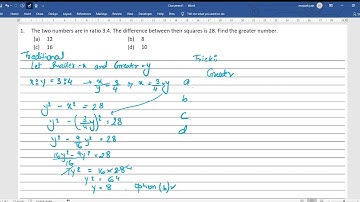 1. The two numbers are in ratio 3:4. The difference between their squares is 28. Find the greater number.
(a) 12 (b) 8
(c) 16 (d) 10
Traditional
Let Smaller = x and Greater = y
x:y = 3:4 → x/y = 3/4 ⇒ x = 3/4 y
y² - x² = 28
y² - (3/4 y)² = 28
y² - 9/16 y² = 28
16y² - 9y² / 16 = 28
7y² = 16×28 4
y² = 64
y = 8 option (b) ✓
Trick:
Greater
a
b
c
d